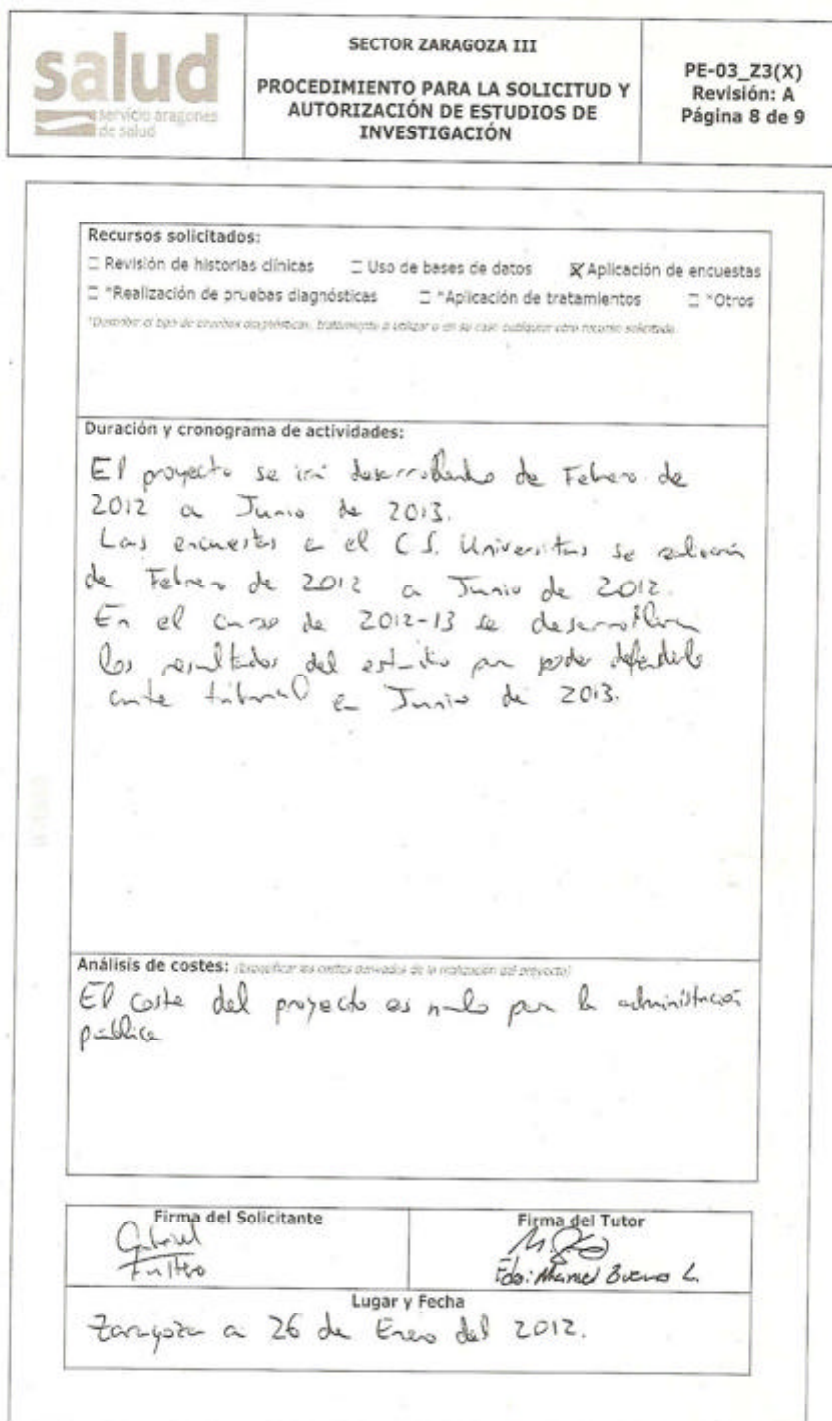 salud
servicio aragones
de salud
SECTOR ZARAGOZA III
PROCEDIMIENTO PARA LA SOLICITUD Y
AUTORIZACIÓN DE ESTUDIOS DE
INVESTIGACIÓN
PE-03_Z3(X)
Revisión: A
Página 8 de 9
Recursos solicitados:
☐ Revisión de historias clínicas ☐ Uso de bases de datos ☒ Aplicación de encuestas
☐ *Realización de pruebas diagnósticas ☐ *Aplicación de tratamientos ☐ *Otros
*Describir el tipo de pruebas diagnósticas, tratamiento a utilizar o en su caso cualquier otro recurso solicitado.
Duración y cronograma de actividades:
El proyecto se irá desarrollando de Febrero de
2012 a Junio de 2013.
Las encuestas en el C.S. Universitas se
de Febrero de 2012 a Junio de 2012.
En el curso de 2012-13 se
los resultados del estudio para poder defenderlo
ante tribunal en Junio de 2013.
Análisis de costes: (Especificar los costes derivados de la realización del proyecto)
El coste del proyecto es nulo para la administración
pública
Firma del Solicitante
Gabriel
Firma del Tutor
Fdo: Manuel Bueno L.
Lugar y Fecha
Zaragoza a 26 de Enero del 2012.